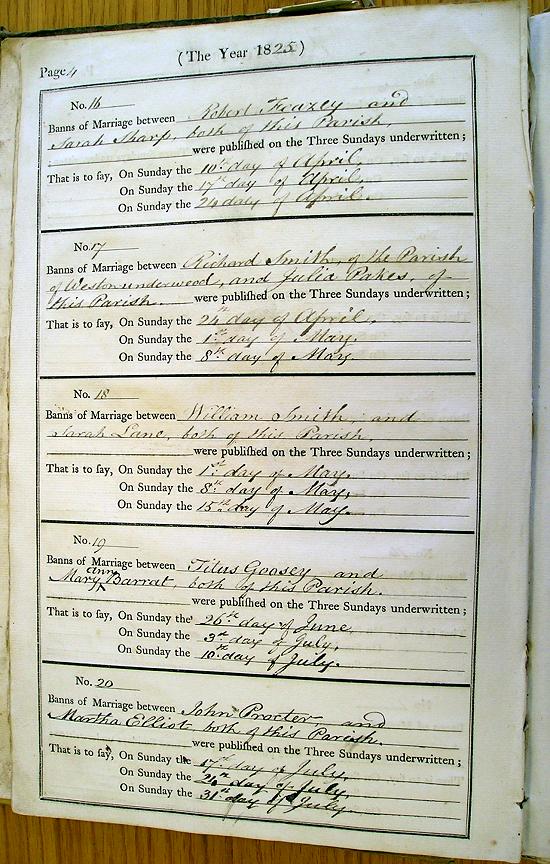 (The Year 1825)
Page 4
No. 16
Banns of Marriage between Robert Feazey and
Sarah Sharp, both of this Parish
were published on the Three Sundays underwritten;
That is to say, On Sunday the 10th day of April,
On Sunday the 17th day of April.
On Sunday the 24 day of April.
No. 17
Banns of Marriage between Richard Smith, of the Parish
of Weston underwood, and Julia Pakes, of
this Parish. were published on the Three Sundays underwritten;
That is to say, On Sunday the 24th day of April,
On Sunday the 1st day of May.
On Sunday the 8th day of May.
No. 18
Banns of Marriage between William Smith and
Sarah Lane, both of this Parish,
were published on the Three Sundays underwritten;
That is to say, On Sunday the 1st day of May,
On Sunday the 8th day of May,
On Sunday the 15th day of May.
No. 19
Banns of Marriage between Titus Goosey and
Mary Ann Barrat, both of this Parish.
were published on the Three Sundays underwritten;
That is to say, On Sunday the 26th day of June,
On Sunday the 3rd day of July,
On Sunday the 10th day of July.
No. 20
Banns of Marriage between John Procter, and
Martha Elliot, both of this Parish.
were published on the Three Sundays underwritten;
That is to say, On Sunday the 17th day of July,
On Sunday the 24th day of July,
On Sunday the 31st day of July.